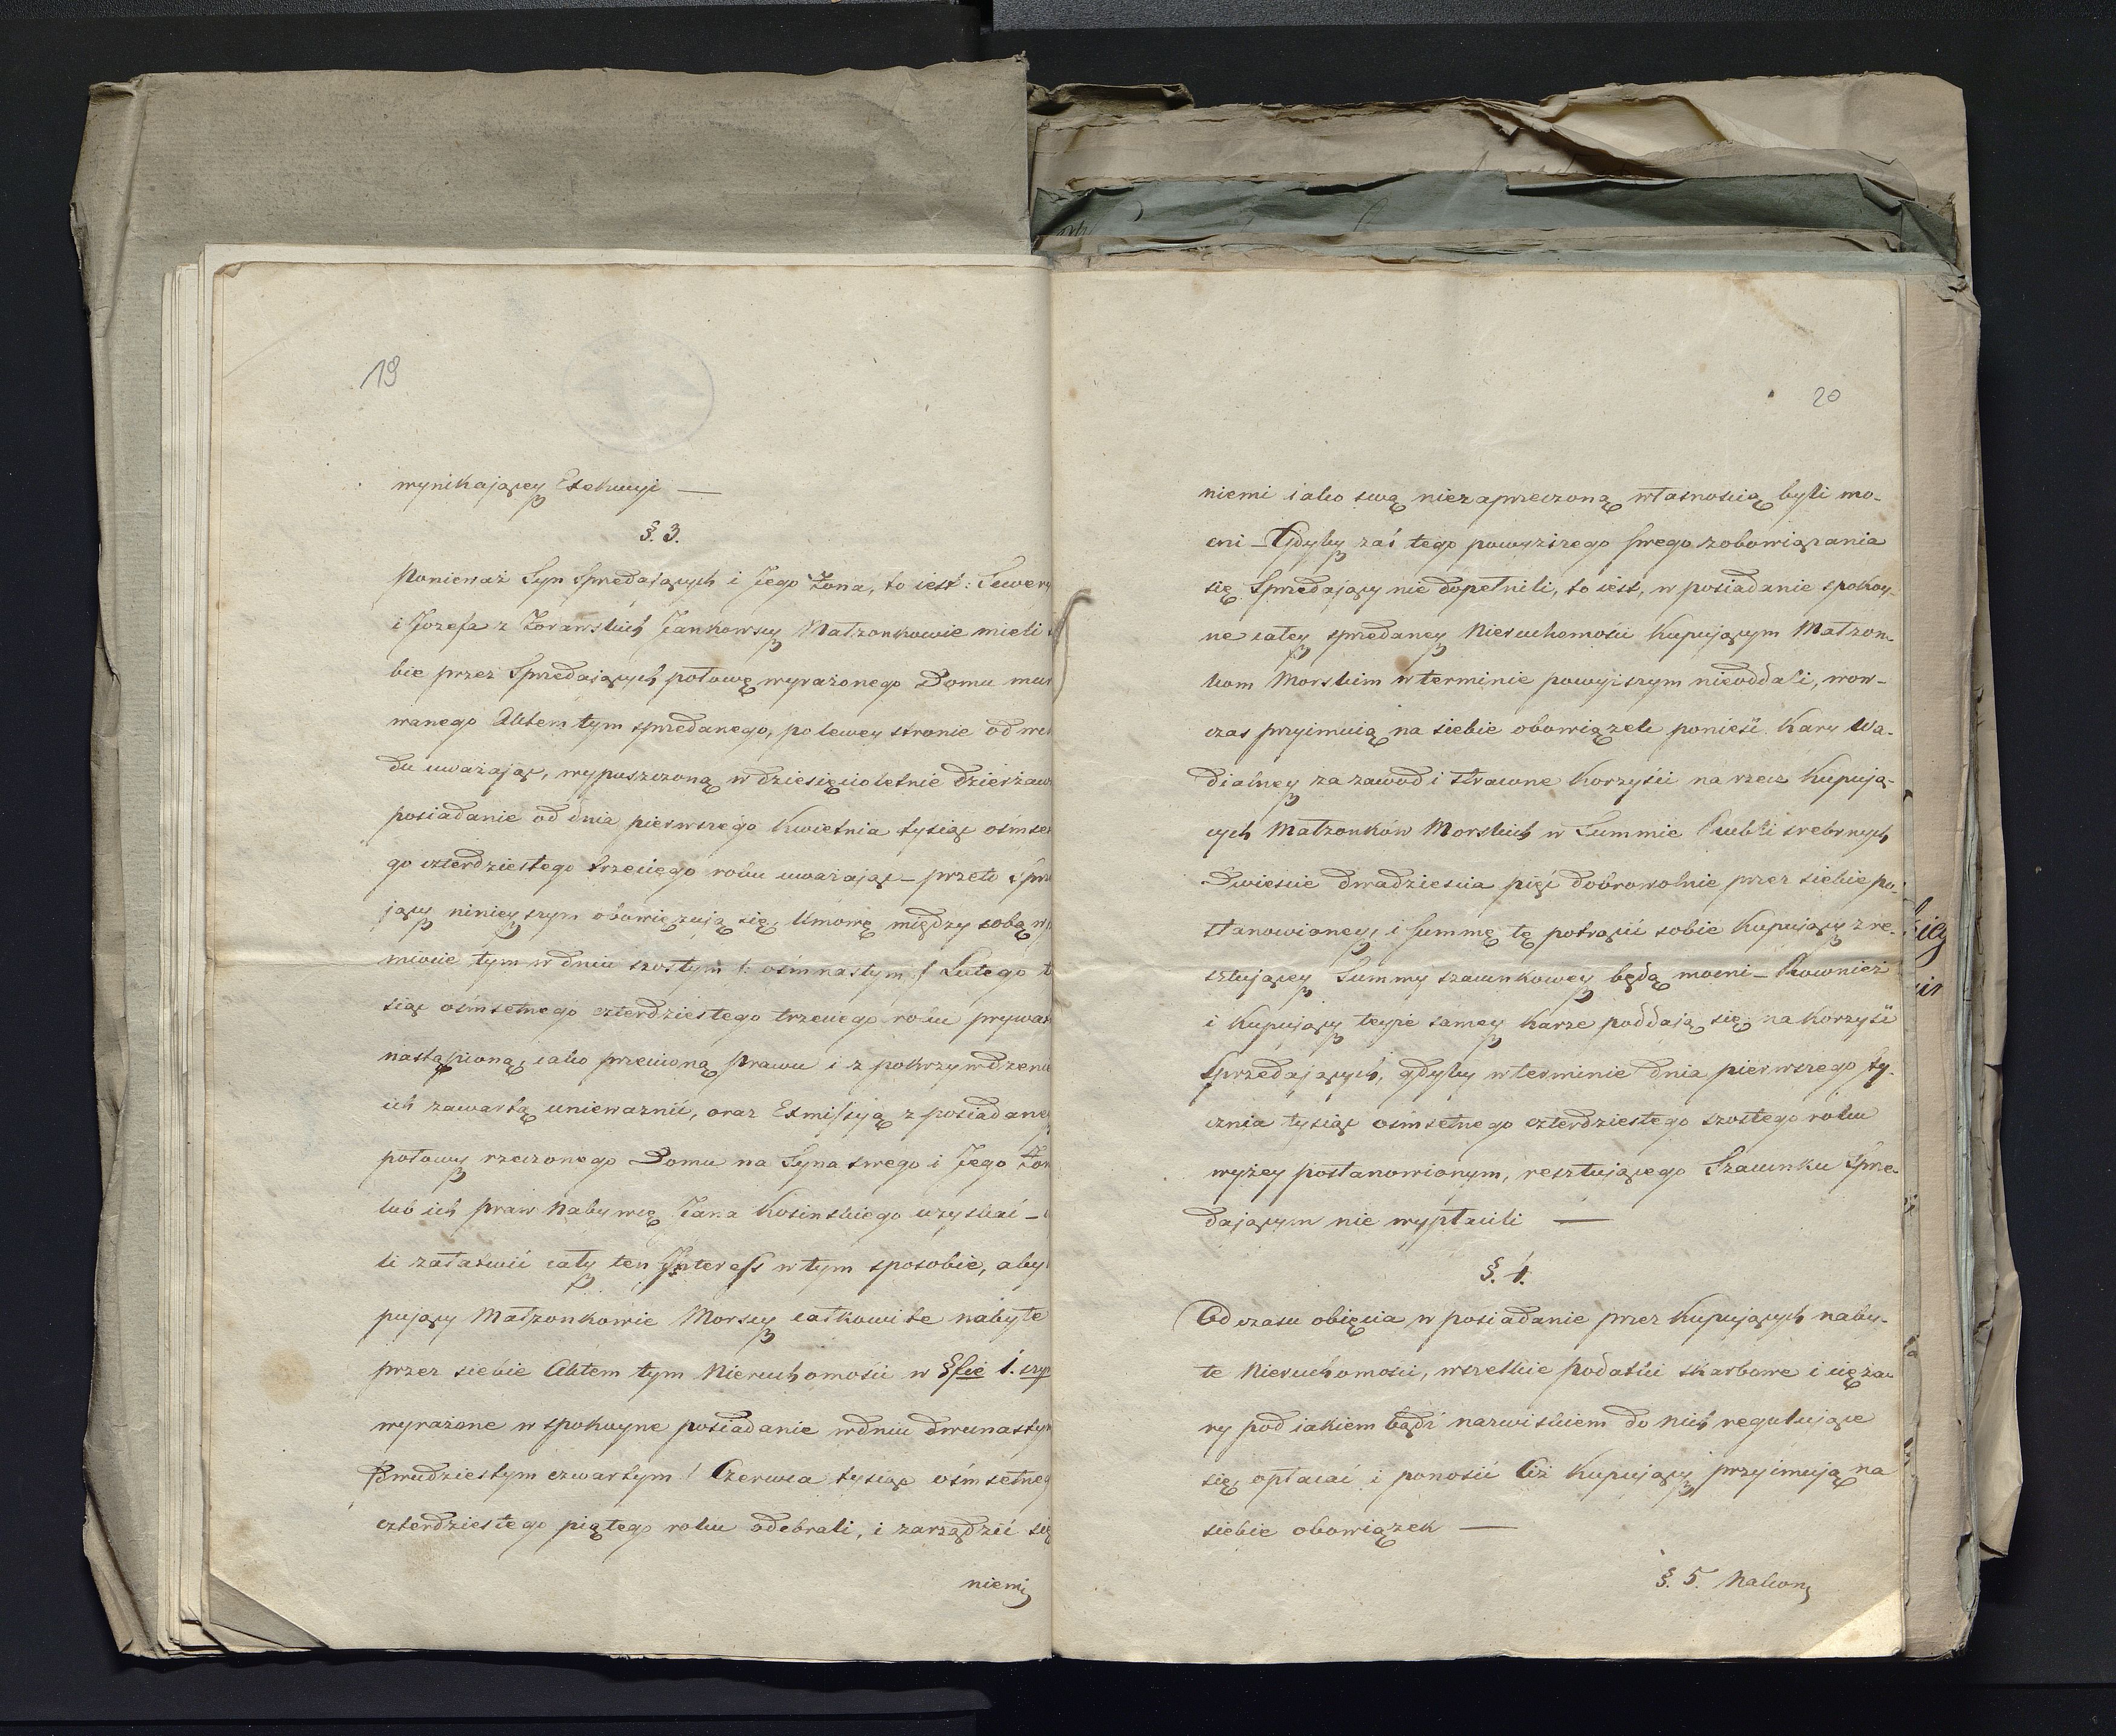 19
wynikaiącey Exekucyi —
§. 3.
Ponieważ Syn Sprzedaiących i Jego Żona, to iest: Sewery
i Jozefa z Żorawskich Jankowscy Małżonkowie mieli
bie przez Sprzedaiących połowę wyrażonego Domu mur
wanego Aktem tym sprzedanego, po lewey stronie od wch
du uważaiąc, wypuszczoną w dziesięcioletnie dzierżaw
posiadanie od dnia pierwszego Kwietnia tysiąc ośmse
go czterdziestego trzeciego roku uważaiąc — przeto Sprz
iący ninieyszym obowięzuią się, Umowę między sobą w
mieście tym w dniu szostym /: ośmnastym / Lutego t
siąc ośmsetnego czterdziestego trzeciego roku prywat
nastąpioną, iako przeciwną Prawu i z pokrzywdzeni
ich zawartą unieważnić, oraz Exmissyią z posiadane
połowy rzeczonego Domu na Syna swego i Jego Żon
lub ich praw Nabywcę Jana Kosinskiego uzyskać —
li załatwić cały ten Jnteress w tym sposobie, aby
puiący Małżonkowie Morscy całkowite nabyte
przez siebie Aktem tym Nieruchomości w §fie 1. szym
wyrażone w spokoyne posiadanie w dniu dwunastym
Dwudziestym czwartym / Czerwca tysiąc ośmsetneg
czterdziestego piątego roku odebrali, i zarządzić się
niemi
20
niemi iako swą niezaprzeczoną własnością byli mo-
cni — Gdyby zaś tego powyższego swego zobowiązania
się Sprzedaiący nie dopełnili, to iest, w posiadanie spokoy-
ne całey sprzedaney Nieruchomości Kupuiącym Małżon-
kom Morskim w terminie powyiszym nieoddali, wow-
czas przyimuią na siebie obowiązek ponieść Kary Wa-
dialney za zawod i stracone Korzyści na rzecz Kupuią-
cych Małżonków Morskich w Summie Rubli srebrnych
Dwieście dwadzieścia pięć dobrowolnie przez siebie po-
stanowioney, i summę tę potrącić sobie Kupuiący z re-
sztuiącey Summy szacunkowey będą mocni — Rownież
i Kupuiący teyże samey karze poddaią się na korzyść
Sprzedaiących, gdyby w terminie dnia pierwszego Sty-
cznia tysiąc ośmsetnego czterdziestego szostego roku
wyżey postanowionym, resztuiącego Szacunku Sprze-
daiącym nie wypłacili —
§. 4.
Od czasu obięcia w posiadanie przez Kupuiących naby-
te Nieruchomości, wszelkie podatki skarbowe i cięża-
ry pod iakiem bądź nazwiskiem do nich reguluiące
się opłacać i ponosić Ciż Kupuiący przyimuią na
siebie obowiązek —
§. 5. Nakon